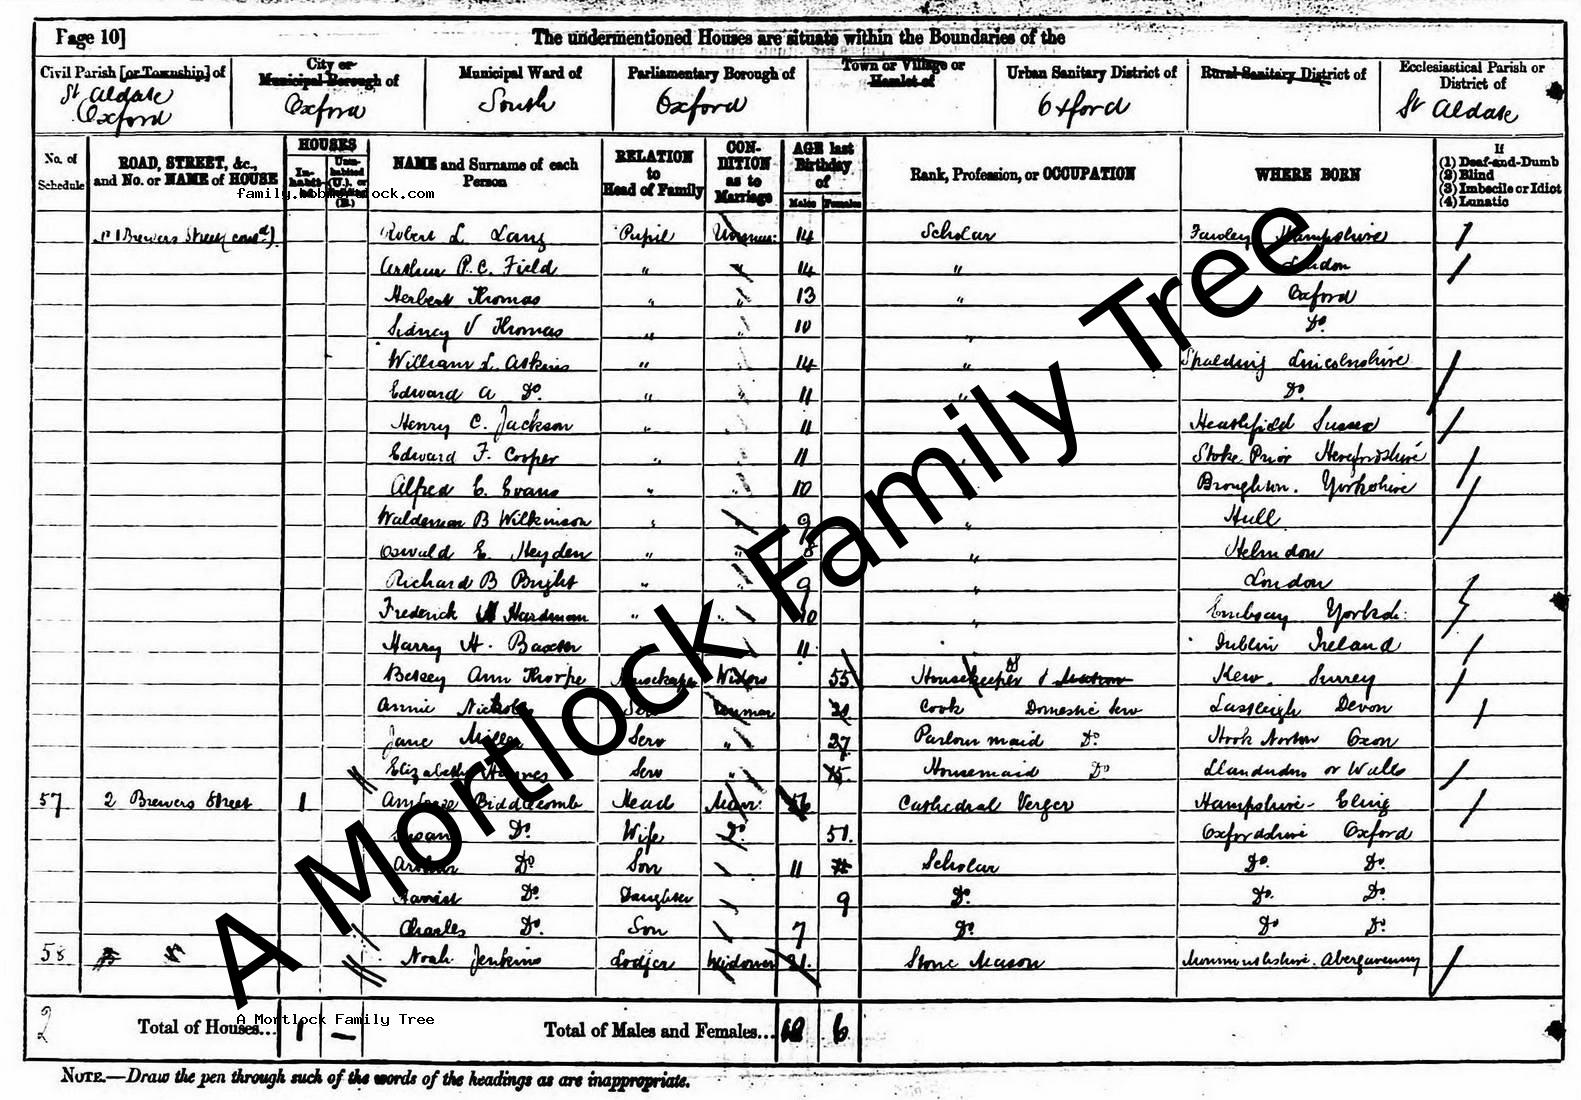 Page 10]
The undermentioned Houses are situate within the Boundaries of the
Civil Parish [or Township] of
St Aldate
Oxford
City or
Municipal Borough of
Oxford
Municipal Ward of
South
Parliamentary Borough of
Oxford
Town or Village or
Hamlet of
Urban Sanitary District of
Oxford
Rural Sanitary District of
Ecclesiastical Parish or
District of
St Aldate
No. of
Schedule
ROAD, STREET, &c.,
and No. or NAME of HOUSE
HOUSES
In-
habit-
Unin-
habited
(U.), or
(B.)
NAME and Surname of each
Person
RELATION
to
Head of Family
CON-
DITION
as to
Marriage
AGE last
Birthday
of
Males
Females
Rank, Profession, or OCCUPATION
WHERE BORN
If
(1) Deaf-and-Dumb
(2) Blind
(3) Imbecile or Idiot
(4) Lunatic
1 Brewers Street (cont'd) Robert L Lang Pupil 14 Scholar Hampshire
Arthur P. C. Field " " 14 " London
Herbert Thomas " " 13 " Oxford
Sidney V Thomas " " 10 Do.
William L. Askins " " 14 " Spalding Lincolnshire
Edward A Do. " " 11 " Do.
Henry C. Jackson " " 11 Heathfield Sussex
Edward F. Cooper " " 11 " Stoke Prior Herefordshire
Alfred E. Evans " " 10 Broughton. Yorkshire
Waldemar B Wilkinson " 9 " Hull
Oswald E. Heyden " " 8 " Helmdon
Richard B Bright " " 9 " London
Frederick Hardman " 10 " Embsay Yorksh:
Harry H. Baxter 11 Dublin Ireland
Betsey Ann Thorpe Housekeeper Widow 55 Housekeeper Kew. Surrey
Annie Nicholls Serv Cook Domestic Serv Devon
Jane Miller Serv " 27 Parlour maid Do. Hook Norton Oxon
Elizabeth Haynes Serv " Housemaid Do Llandudno N Wales
57 2 Brewers Street 1 Ambrose Biddlecomb Head Marr: 56 Cathedral Verger Hampshire - Eling
Susan Do. Wife Do. 51 Oxfordshire Oxford
Arthur Do. Son 11 Scholar Do. Do.
Harriet Do. Daughter 9 Do. Do. Do.
Charles Do. Son 7 Do. Do Do.
58 Noah Jenkins Lodger Widower 31. Stone Mason Monmouthshire. Abergavenny
2 Total of Houses... 1 — Total of Males and Females... 18 6
NOTE.—Draw the pen through such of the words of the headings as are inappropriate.
family.mobmortlock.com
A Mortlock Family Tree
A Mortlock Family Tree